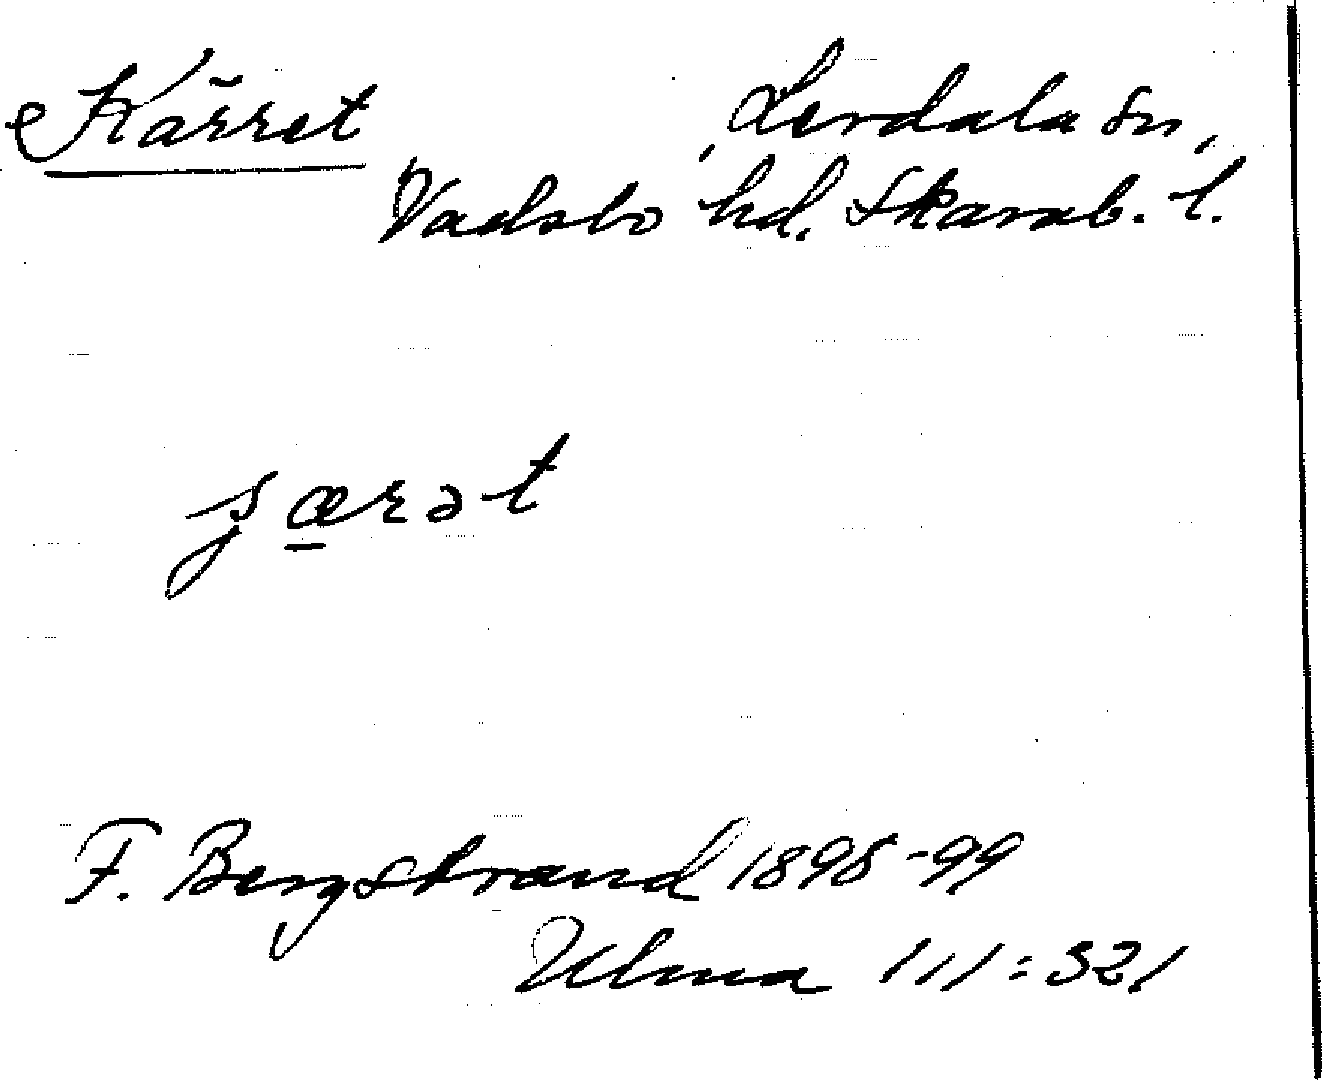 Kärret Lerdala sn,
Vadsbo hd. Skarab. l.
ʂærət
F. Bergstrand 1898-99
Ulma 111:321